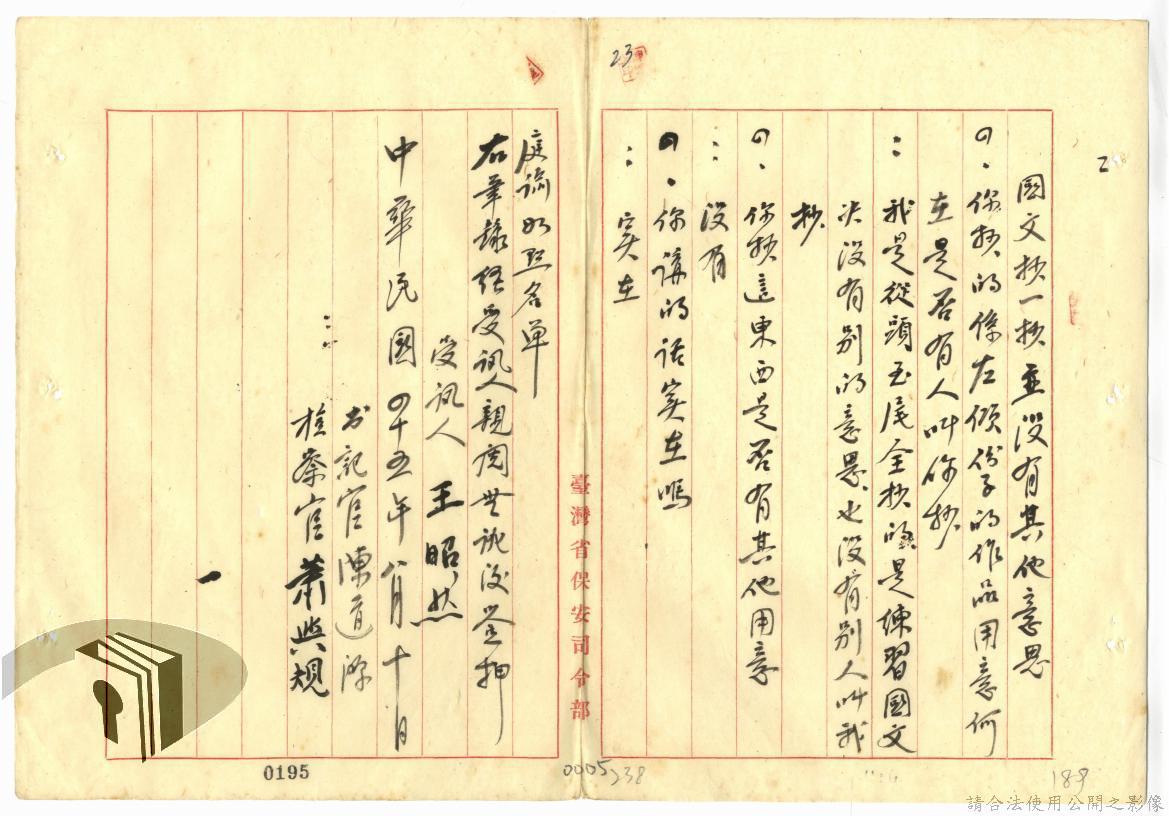 23
2
國文抄一抄並没有其他意思
の、你抄的係左傾份子的作品用意何
在是否有人叫你抄
：我是從頭至尾全抄的是練習國文
决没有別的意思也没有別人叫我
抄
の、你抄這東西是否有其他用意
：没有
の、你講的話实在嗎
：实在
臺灣省保安司令部
庭諭如点名单
右筆錄經受訊人親閱無訛後签押
受訊人 王昭然
中華民國四十五年八月十 日
书记官 陳道
檢察官 萧与规
一
0195
0005
238
189
請合法使用公開之影像